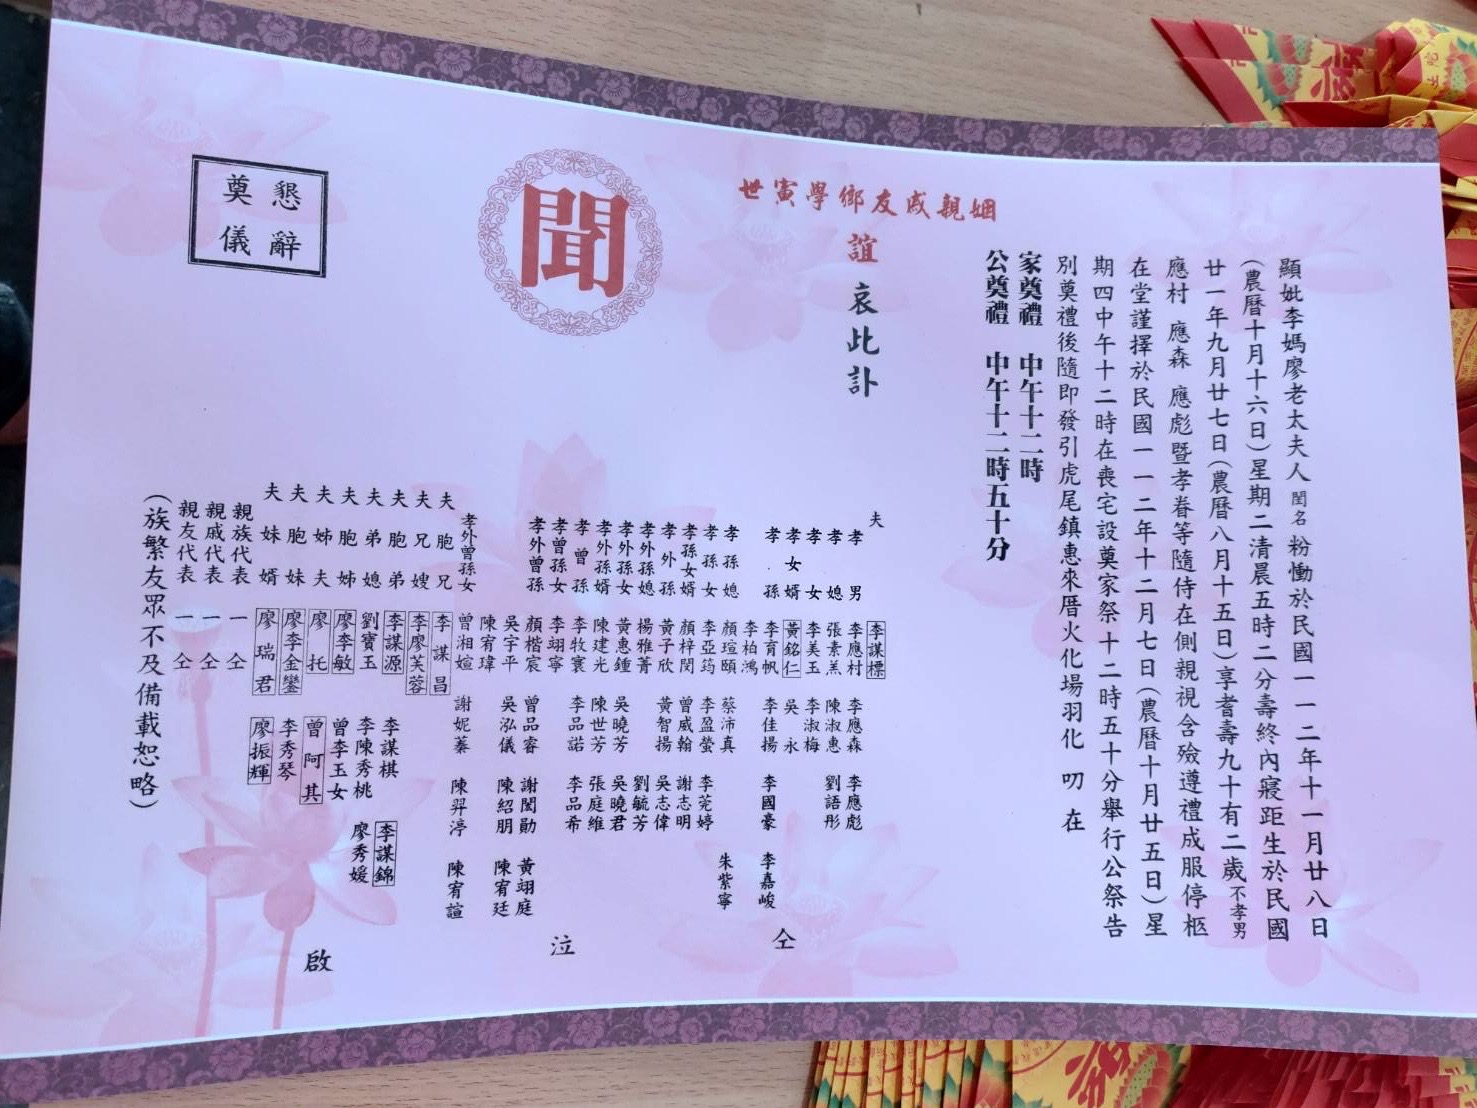 顯妣李媽廖老太夫人閨名粉慟於民國一一二年十一月廿八日
(農曆十月十六日)星期二清晨五時二分壽終內寢距生於民國
廿一年九月廿七日(農曆八月十五日)享耆壽九十有二歲不孝男
應村 應森 應彪暨孝眷等隨侍在側親視含殮遵禮成服停柩
在堂謹擇於民國一一二年十二月七日(農曆十月廿五日)星
期四中午十二時在喪宅設奠家祭十二時五十分舉行公祭告
別奠禮後隨即發引虎尾鎮惠來厝火化場羽化 叨 在
家奠禮 中午十二時
公奠禮 中午十二時五十分
姻親戚友鄉學寅世
誼 哀此訃
聞
懇辭
奠儀
夫 李謀標
孝男 李應村 李應森 李應彪
孝媳 張素羔 陳淑惠 劉語彤
孝女 李美玉 李淑梅
孝女婿 黃銘仁 吳永
孝孫 李育帆 李佳揚 李國豪 李嘉峻
李柏鴻
孝孫媳 顏瑄頤 蔡沛真 朱紫寧
孝孫女 李亞筠 李盈螢 李莞婷
孝孫女婿 顏梓閔 曾威翰 謝志明
孝外孫 黃子欣 黃智揚 吳志偉
孝外孫媳 楊雅菁 劉毓芳
孝外孫女 黃惠鍾 吳曉芳 吳曉君
孝外孫婿 陳建光 陳世芳 張庭維
孝曾孫 李牧寰 李品諾 李品希
孝曾孫女 李翊寧
孝外曾孫 顏楷宸 曾品睿 謝閔勛 黃翊庭
吳宇平 吳泓儀 陳紹朋 陳宥廷
陳宥瑋
孝外曾孫女 曾湘媗 謝妮蓁 陳羿渟 陳宥諠
仝
泣
夫胞兄 李謀昌
夫兄嫂 李廖芙蓉
夫胞弟 李謀源 李謀棋 李謀錦
夫弟媳 劉寶玉 李陳秀桃 廖秀媛
夫胞姊 廖李敏 曾李玉女
夫姊夫 廖托 曾阿其
夫胞妹 廖李金鑾 李秀琴
夫妹婿 廖瑞君 廖振輝
親族代表 一仝
親戚代表 一仝
親友代表 一仝
啟
(族繁友眾不及備載恕略)